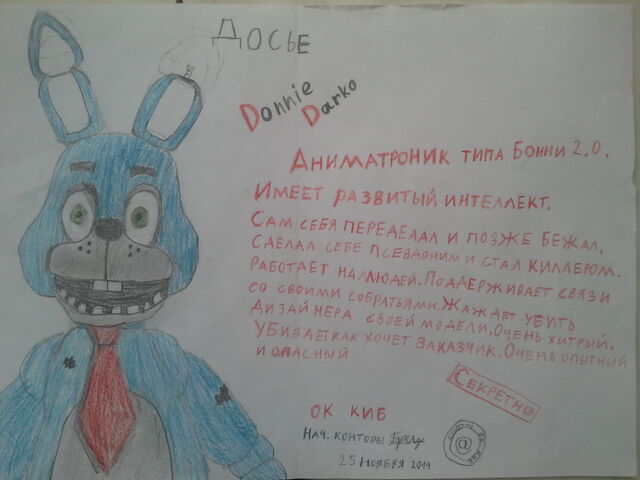 Досье
Donnie
Darko
Аниматроник типа Бонни 2.0.
Имеет развитый интеллект.
Сам себя переделал и позже бежал,
сделал себе псевдоним и стал киллером.
Работает на людей. Поддерживает связи
со своими собратьями. Жаждет убить
дизайнера своей модели. Очень хитрый.
Убивает как хочет заказчик. Очень опытный
и опасный
Секретно
ОК КИБ
Нач. конторы
25 ноября 2014
@